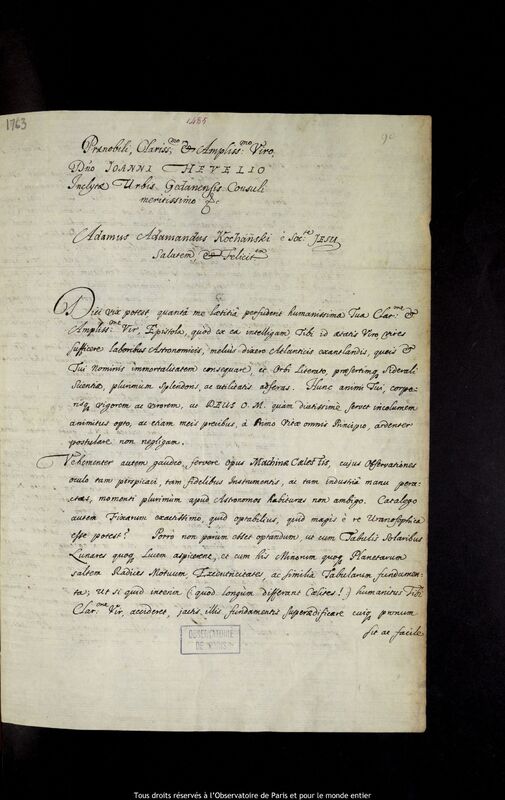 1763
1485
90
Prænobili, Clariss:mo & Ampliss:mo Viro,
Dno IOANNI HEVELIO
Inclytæ Urbis Gedanensis Consuli
meritissimo &c
Adamus Adamandus Kochański è Soc:te JESU
Salutem, & Felicit:em
Dici vix potest, quantâ me lætitiâ perfuderit humanissima Tua Clar:me &
Ampliss:me Vir, Epistola, quod ex ea intelligam Tibi id ætatis Viro vires
sufficere laboribus Astronomicis, meliùs dixero Atlanticis exanclandis, queis &
Tui Nominis immortalitatem consequare, & Orbi Literato, præsertimq Siderali
Scientiæ, plurimum Splendoris, ac utilitatis adferas. Hunc animi Tui, corpo-
risq vigorem ac virorem, ut DEUS O. M. quàm diutissimè servet incolumem
animitus opto, ac etiam meis precibus, à Primo Vitæ omnis Principio, ardenter
postulare non negligam.
Vehementer autem gaudeo fervere opus Machinæ Cælestis, cujus Observationes
oculo tam perspicaci, tam fidelibus Instrumentis, ac tam industriâ manu pera-
ctas, momenti plurimùm apud Astronomos habituras non ambigo. Catalogo
autem Fixarum exactissimo, quid optabilius, quid magis è re Uranosophica
esse potest? Porro non parum esset optandum, ut cum Tabulis Solaribus
Lunares quoq Lucem aspicerent, & cum his Minorum quoq Planetarum
saltem Radices Motuum, Excentricitates, ac similia Tabularum fundamen-
ta; Ut si quid interea (quod longùm differant Cælites!) humanitus Tibi
Clar:me Vir, accideret, jactis illis fundamentis superædificare cuiq pronum
sit ac facile
OBSERVATOIRE
DE PARIS
Tous droits réservés à l'Observatoire de Paris et pour le monde entier